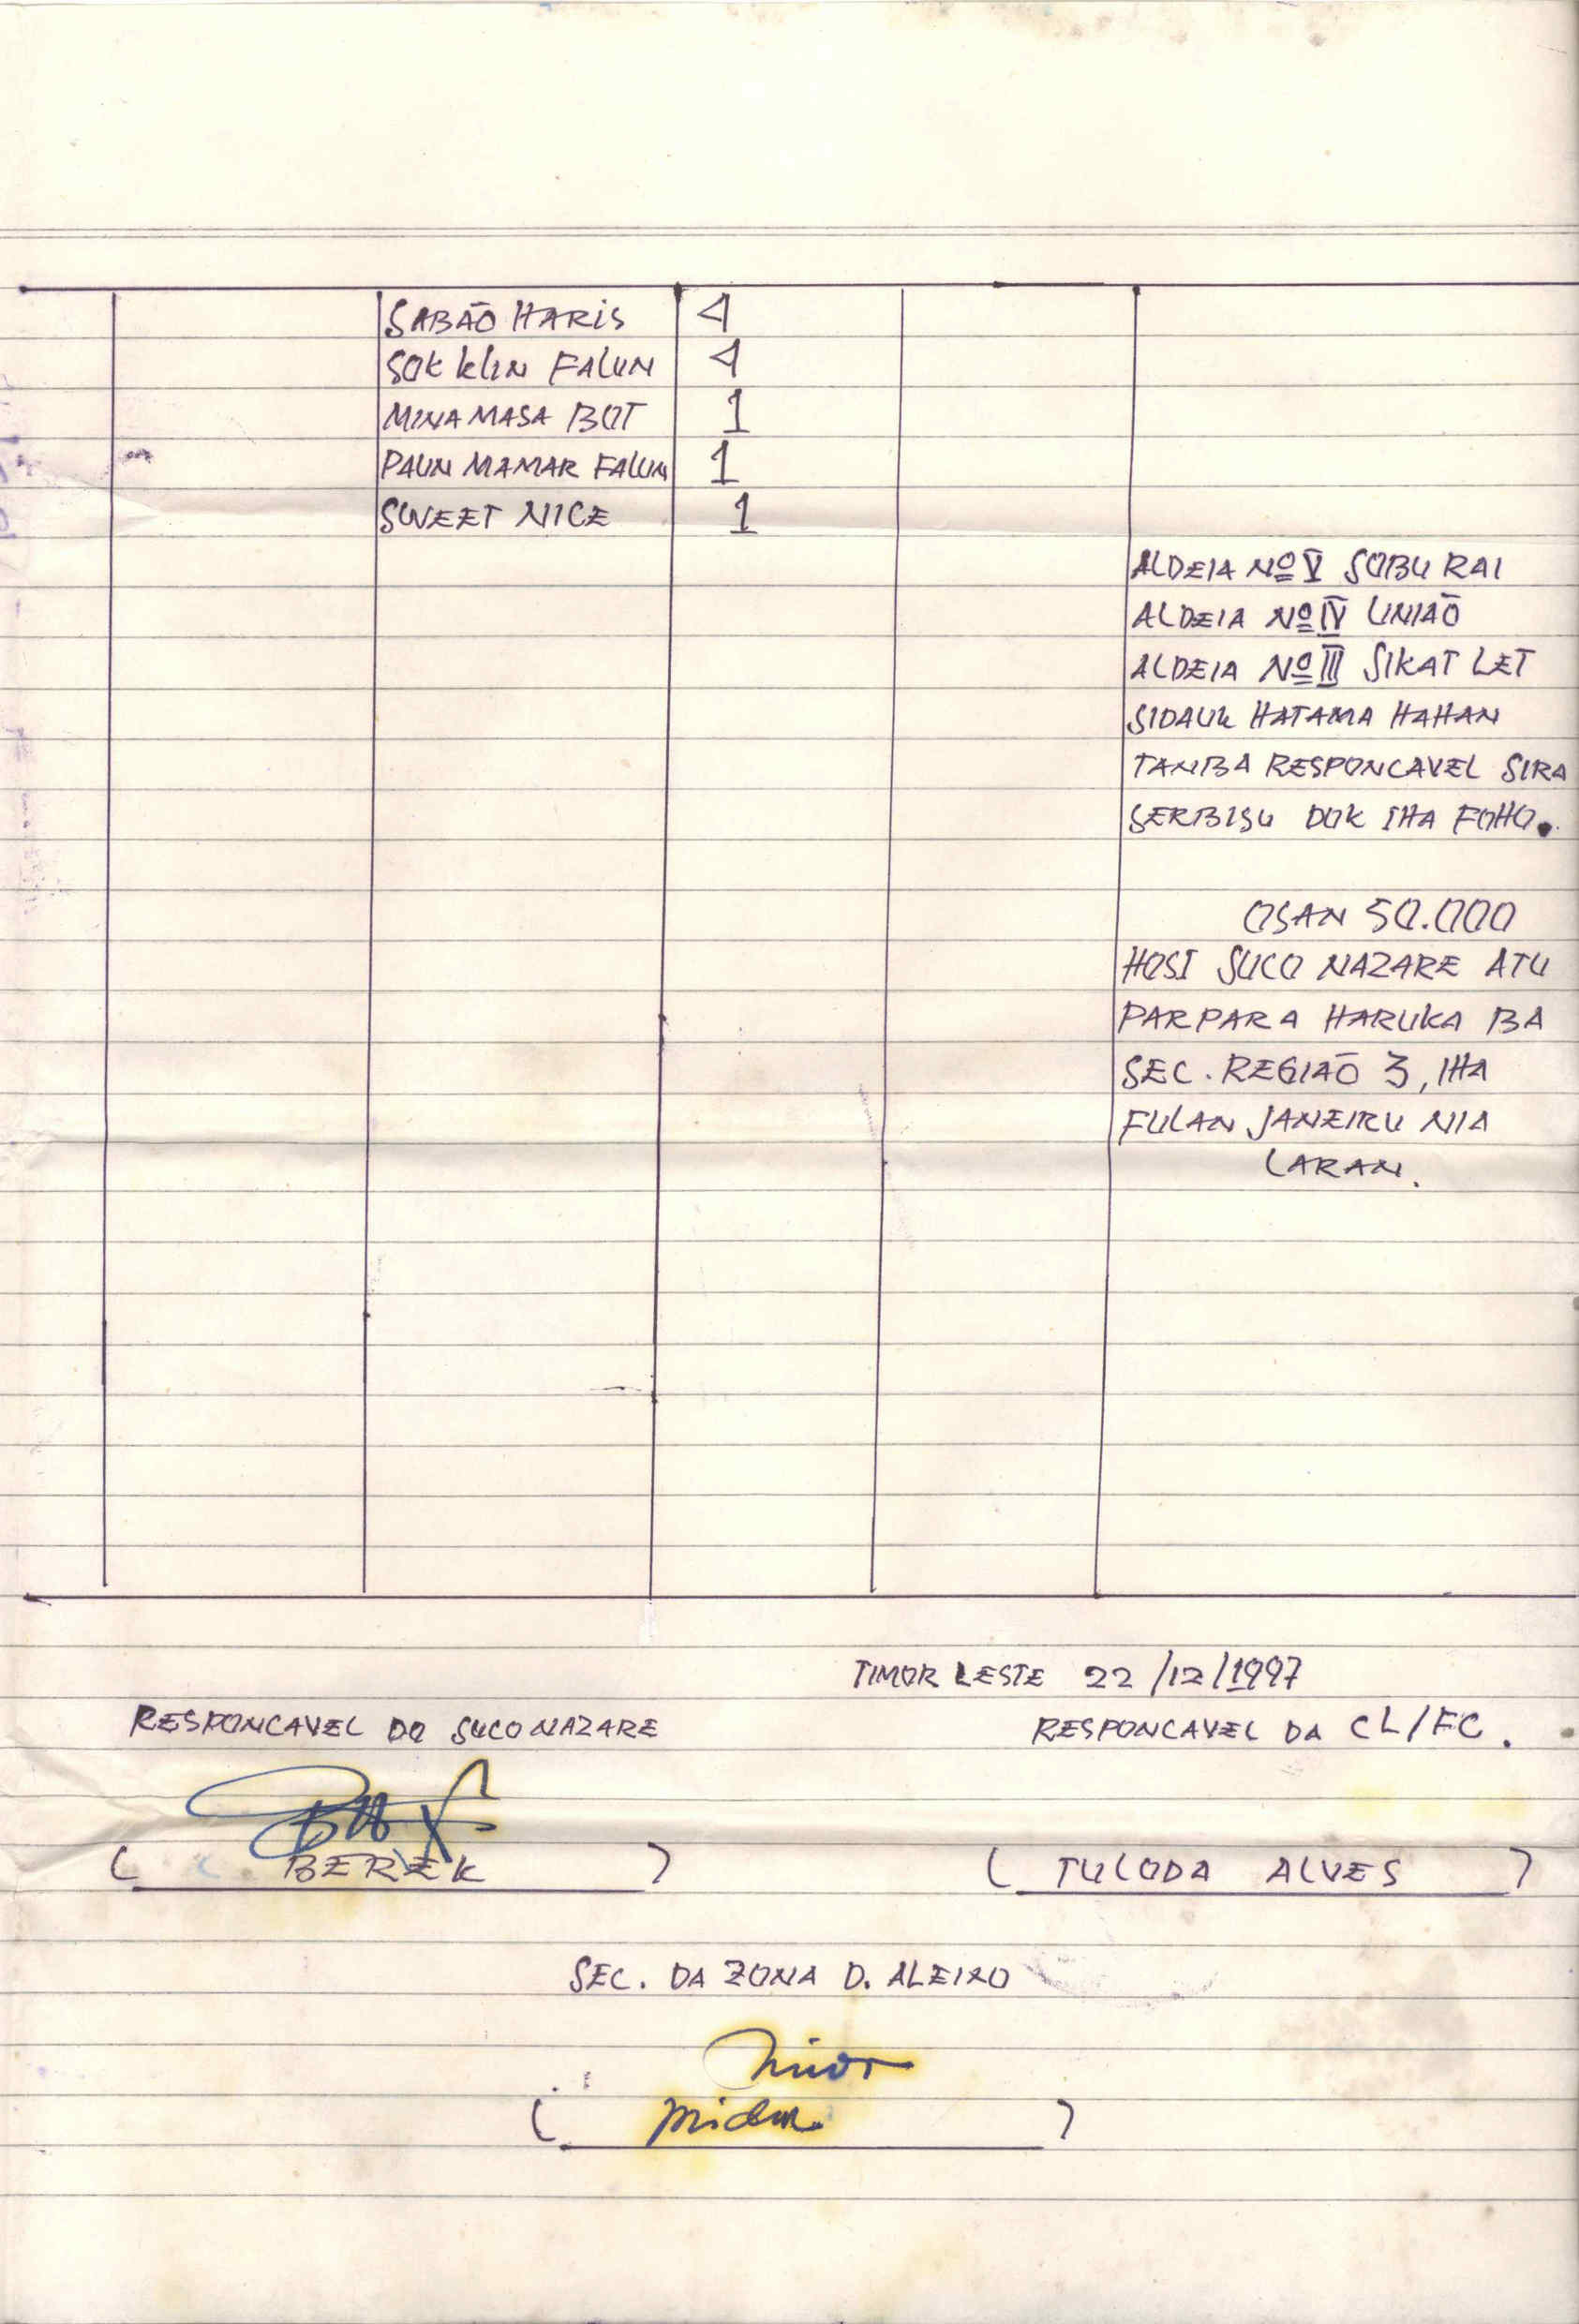 SABÃO HARIS 4
SOK KLIN FALUN 4
MINA MASA BOT 1
PAUN MAMAR FALUN 1
SWEET NICE 1
ALDEIA Nº V SOBU RAI
ALDEIA Nº IV UNIÃO
ALDEIA Nº III SIKAT LET
SIDAUK HATAMA HAHAN
TANBA RESPONCAVEL SIRA
SERBISU DOK IHA FOHO.
OSAN 50.000
HOSI SUCO NAZARE ATU
PARPARA HARUKA BA
SEC. REGIÃO 3, IHA
FULAN JANEIRU NIA
LARAN.
TIMOR LESTE 22/12/1997
RESPONCAVEL DO SUCO NAZARE
RESPONCAVEL DA CL/FC.
( BEREK )
( TULODA ALVES )
SEC. DA ZONA D. ALEIXO